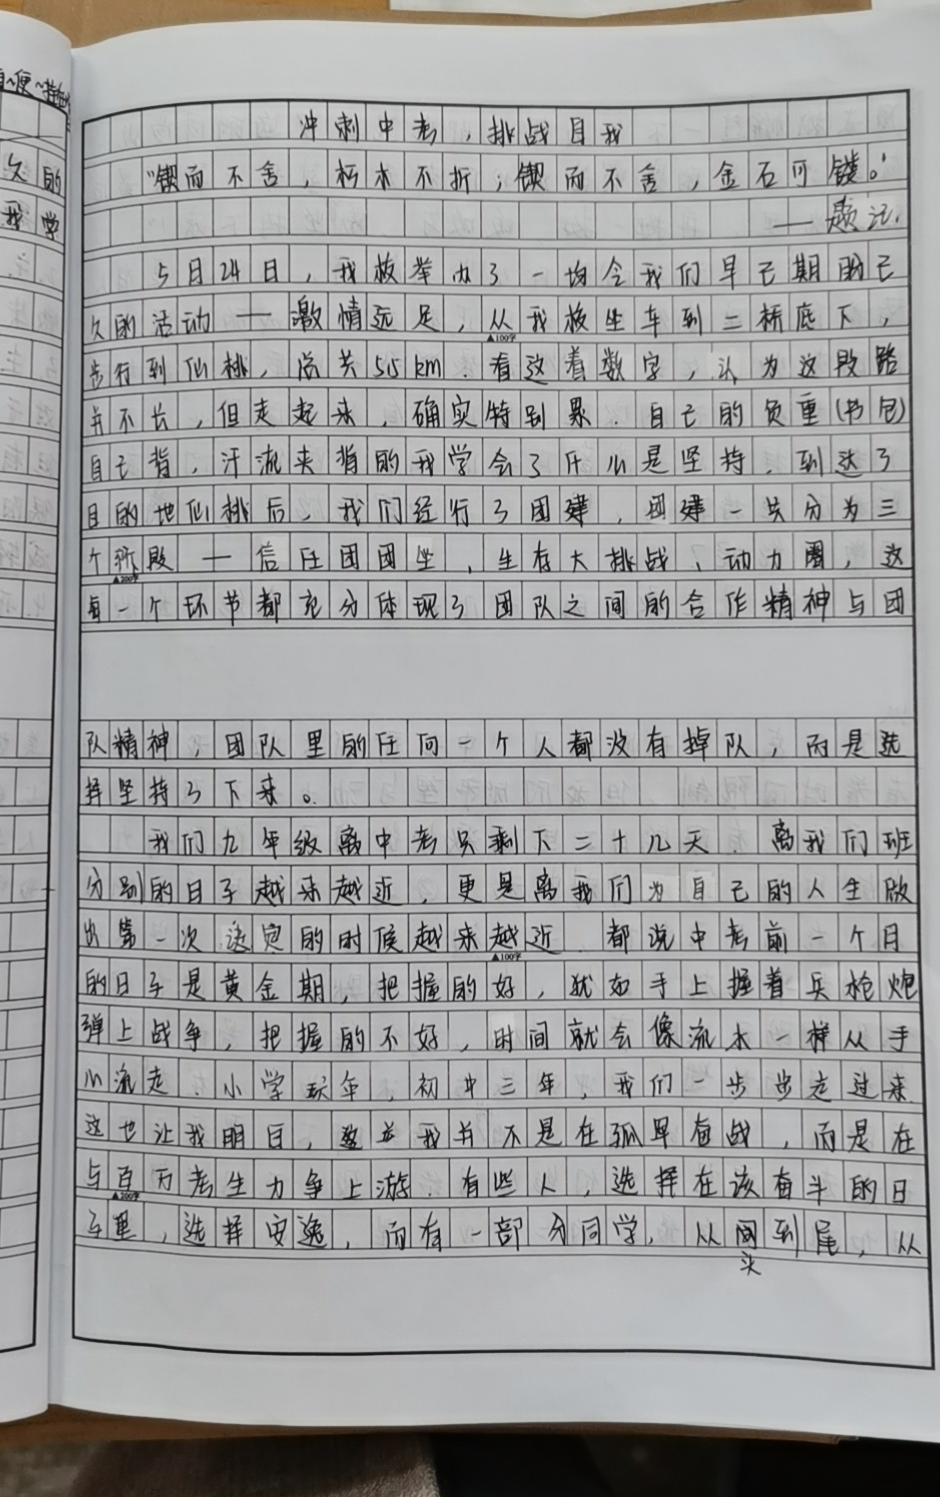 冲刺中考，挑战自我
“锲而不舍，朽木不折；锲而不舍，金石可镂。”
——题记.
5月24日，我校举办了一场令我们早已期盼已
久的活动——激情远足，从我校坐车到二桥底下，
步行到仙桃，总共515km.看这着数字，认为这段路
并不长，但走起来，确实特别累.自己的负重(书包)
自己背，汗流夹背的我学会了什么是坚持.到达了
目的地仙桃后，我们经行了团建，团建一共分为三
个阶段——信任团团坐，生存大挑战、动力圈，这
每一个环节都充分体现了团队之间的合作精神与团
队精神，团队里的任何一个人都没有掉队，而是选
择坚持了下来。
我们九年级离中考只剩下二十九天.离我们班
分别的日子越来越近，更是离我们为自己的人生做
出第一次决定的时候越来越近.都说中考前一个月
的日子是黄金期，把握的好，犹如手上握着兵枪炮
弹上战争，把握的不好，时间就会像流水一样从手
心流走.小学六年，初中三年，我们一步步走过来.
这也让我明白，我并不是在孤军奋战，而是在
与百万考生力争上游.有些人，选择在该奋斗的日
子里，选择安逸，而有一部分同学，从头到尾，从
久的
我学